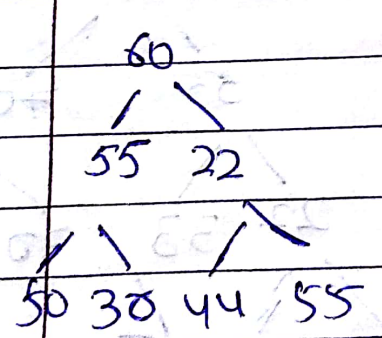 60
55 22
50 30 44 55